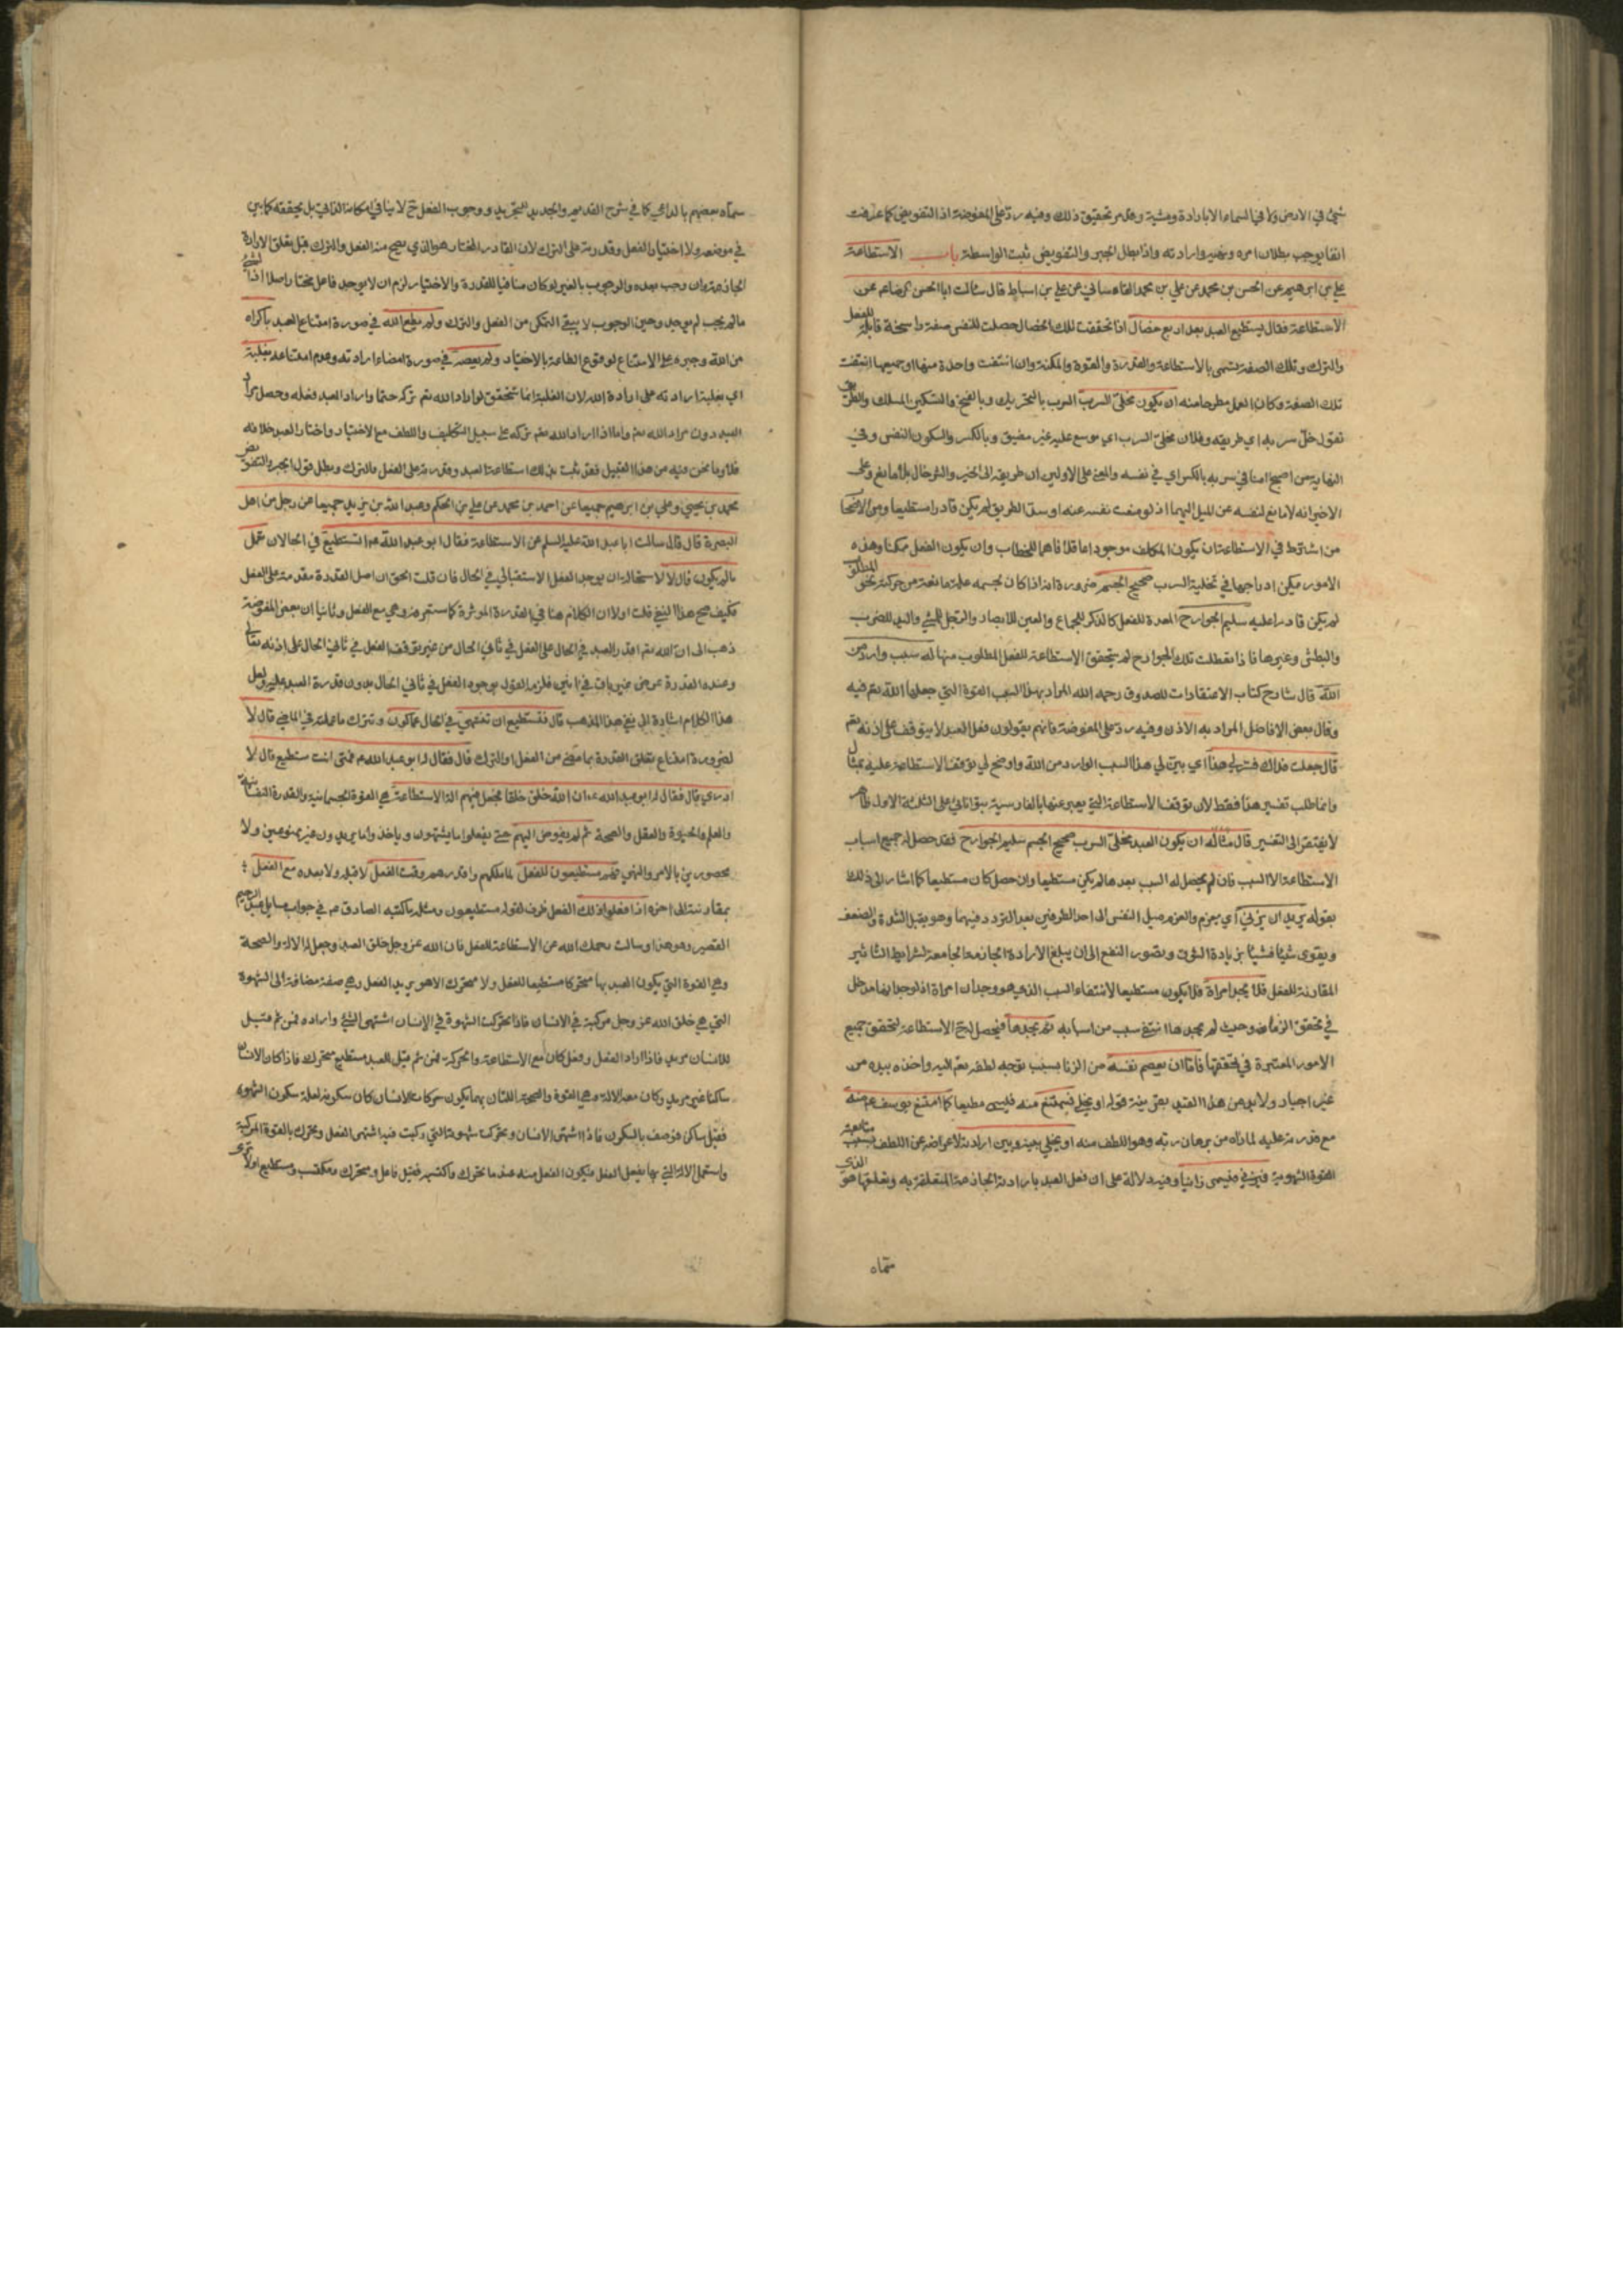 شيئ في الارض ولا في السماء الا بارادة ومشية وعلم وتحقيق ذلك وفيه ردّ على المفوضة اذ التفويض كما عرفت
انفا يوجب بطلان امره ونهيه وارادته واذا بطل الجبر والتفويض ثبت الواسطة باب الاستطاعة
علي بن ابرهيم عن الحسن بن محمد عن علي بن محمد القاساني عن علي بن اسباط قال سالت ابا الحسن الرضا عم عن
الاستطاعة فقال يستطيع العبد بعد اربع خصال اذا تحققت تلك الخصال حصلت للنفس صفة راسخة قابلة للفعل
والترك وتلك الصفة يسمى بالاستطاعة والقدرة والقوة والمكنة وان انتفت واحدة منها او جميعها انتفت
تلك الصفة وكان العمل مطرحا منه ان يكون مخلّى السرب السرب بالتحريك وبالفتح والتسكين المسلك والطريق
نقول خلّ سربه اي طريقه وفلان مخلّى السرب اي موسع عليه غير مضيق وبالكسر والسكون النفس وفي
النهاية من اصبح امنا في سربه بالكسر اي في نفسه والمعنى على الاولين ان طريقه الى الخير والشر خال بلا مانع وعلى
الاخير انه لا مانع لنفسه عن الميل اليهما اذ لو منعت نفسه عنه او سدّ الطريق لم يكن قادرا مستطيعا ومن الاصحاب
من اشترط في الاستطاعة ان يكون المكلف موجودا عاقلا فاهما للخطاب وان يكون الفعل ممكنا وهذه
الامور يمكن ادراجها في تخلية السرب صحيح الجسم ضرورة انه اذا كان لجسمه علة مانعة من حركته نحو المطلوب
لم يكن قادرا عليه سليم الجوارح المعدة للفعل كالذكر للجماع والعين للابصار والرجل للمشي واليد للضرب
والبطش وغيرها فاذا تعطلت تلك الجوارح لم يتحقق الاستطاعة للفعل المطلوب منها له سبب وارد من
الله قال شارح كتاب الاعتقادات للصدوق رحمه الله المراد بهذا السبب القوة التي جعلها الله تعم فيه
وقال بعض الافاضل المراد به الاذن وفيه ردّ على المفوضة فانهم يقولون فعل العبد لا يتوقف على اذنه تعم
قال جعلت فداك فسّر لي هذا اي بيّن لي هذا السبب الوارد من الله واوضح لي توقف الاستطاعة عليه بمثال
وانما طلب تفسير هذا فقط لان توقف الاستطاعة التي يعبر عنها بالفارسية بتوانائي على الثلثة الاول ظاهر
لا يفتقر الى التفسير قال مثاله ان يكون العبد مخلّى السرب صحيح الجسم سليم الجوارح فقد حصل له جميع اسباب
الاستطاعة الا السبب فان لم يحصل له السبب بعدها لم يكن مستطيعا وان حصل كان مستطيعا كما اشار الى ذلك
بقوله يريد ان يزني اي يعزم والعزم ميل النفس الى احد الطرفين بعد التردد فيهما وهو يقبل الشدة والضعف
ويقوى شيئا فشيئا بزيادة الشوق وتصور النفع الى ان يبلغ الارادة الجازمة الجامعة لشرايط التاثير
المقارنة للفعل فلا يجد امراة فلا يكون مستطيعا لانتفاء السبب الذي هو وجدان امراة اذ لوجدانها مدخل
في تحقق الزنا وحيث لم يجدها انتفى سبب من اسبابه ثم يجدها فيحصل له ح الاستطاعة لتحقق جميع
الامور المعتبرة في تحققها فاما ان يعصم نفسه من الزنا بسبب توجه لطفه تعم اليه واخذه بيده من
غير اجبار ولا بد من هذا القيد بقرينة قوله او يخلي فيمتنع منه فليسمى مطيعا كما امتنع يوسف عم منه
مع قدرته عليه لما راه من برهان ربه وهو اللطف منه او يخلي بينه وبين ارادته لاعراضه عن اللطف بسبب متابعة
القوة الشهوية فيزني فيسمى زانيا وفيه دلالة على ان فعل العبد بارادته الجازمة المتعلقة به وتعلقها هو الذي
سماه
سماه بعضهم بالداعي كما في شرح القديم والجديد للتجريد ووجوب الفعل ح لا ينافي امكانه الذاتي بل يحققه كما بين
في موضعه ولا اختيار الفعل وقدرته على الترك لان القادر المختار هو الذي يصح منه الفعل والترك قبل تعلق الارادة
الجازمة وان وجب بعده والوجوب بالغير لو كان منافيا للقدرة والاختيار لزم ان لا يوجد فاعل مختار اصلا اذ الشيء
ما لم يجب لم يوجد وحين الوجوب لا يبقى التمكن من الفعل والترك ولم يطع الله في صورة امتناع العبد باكراه
من الله وجبره على الامتناع لوقوع الطاعة بالاختيار ولم يعصه في صورة امضاء ارادته وعدم امتناعه بغلبة
اي بغلبة ارادته على ارادة الله لان الغلبة انما تتحقق لو اراد الله تعم تركه حتما واراد العبد فعله وحصل مراد
العبد دون مراد الله تعم واما اذا اراد الله تعم تركه على سبيل التكليف واللطف مع الاختيار واختار العبد خلافه
فلا وما نحن فيه من هذا القبيل فقد ثبت بذلك استطاعة العبد وقدرته على الفعل والترك وبطل قول الجبر والتفويض
محمد بن يحيى وعلي بن ابرهيم جميعا عن احمد بن محمد عن علي بن الحكم وعبد الله بن يزيد جميعا عن رجل من اهل
البصرة قال قال سالت ابا عبد الله عليه السلم عن الاستطاعة فقال ابو عبد الله عم اتستطيع في الحال ان تعمل
ما لم يكون قال لا لاستحالة ان يوجد الفعل الاستقبالي في الحال فان قلت الحق ان اصل القدرة مقدمة على الفعل
فكيف صح هذا النفي قلت اولا ان الكلام هنا في القدرة الموثرة كما ستعرفه وهي مع الفعل وثانيا ان بعض المفوضة
ذهب الى ان الله تعم اقدر العبد في الحال على الفعل في ثاني الحال من غير توقف الفعل في ثاني الحال على اذنه تعالى
وعنده القدرة عرض غير باق في زمانين فلزمه القول بوجود الفعل في ثاني الحال بدون قدرة العبد عليه ولعل
هذا الكلام اشارة الى نفي هذا المذهب قال فتستطيع ان تنتهي في الحال عما كون وتترك ما عملته في الماضي قال لا
لضرورة امتناع تعلق القدرة بما مضى من الفعل او الترك قال فقال له ابو عبد الله عم فمتى انت مستطيع قال لا
ادري قال فقال له ابو عبد الله عم ان الله خلق خلقا فجعل فيهم الة الاستطاعة هي القوة الجسمانية والقدرة النفسانية
والعلم والحيوة والعقل والصحة ثم لم يفوض اليهم حتى يفعلوا ما يشتهون وياخذوا ما يريدون غير ممنوعين ولا
محصورين بالامر والنهي فهم مستطيعون للفعل لما ملكهم واقدرهم وقت الفعل لا قبله ولا بعده مع الفعل
بمقارنته الى اخره اذا فعلوا ذلك الفعل ظرف لقوله مستطيعون ومثله ما كتبه الصادق عم في جواب مسايل عبد الرحيم
القصير وهو هذا وسالت رحمك الله عن الاستطاعة للفعل فان الله عز وجل خلق العبد وجعل له الالة والصحة
وهي القوة التي يكون العبد بها متحركا مستطيعا للفعل ولا متحرك الا هو يريد الفعل وهي صفة مضافة الى الشهوة
التي هي خلق الله عز وجل مركبة في الانسان فاذا تحركت الشهوة في الانسان اشتهى الشيء واراده فمن ثم قيل
للانسان مريد فاذا اراد الفعل وفعل كان مع الاستطاعة والحركة فمن ثم قيل للعبد مستطيع متحرك فاذا كان الانسان
ساكنا غير مريد وكان معه الالة وهي القوة والصحة اللتان بهما يكون حركات الانسان كان سكونه لعلة سكون الشهوة
فقيل ساكن فوصف بالسكون فاذا اشتهى الانسان وتحركت شهوته التي ركبت فيه اشتهى الفعل وتحرك بالقوة المركبة
واستعمل الالة التي بها يفعل الفعل فيكون الفعل منه عند ما تحرك واكتسبه فقيل فاعل ومتحرك ومكتسب ومستطيع اولا ترى